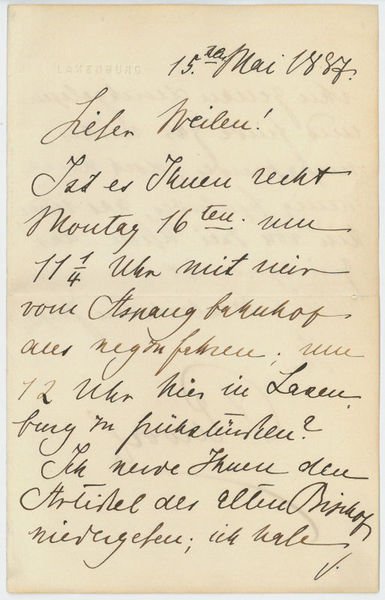 15. ten Mai 1887.
Lieber Weilen!
Ist es Ihnen recht
Montag 16 ten. um
11 1/4 Uhr mit mir
vom Aspangbahnhof
aus wegzufahren, um
12 Uhr hier in Laxen
burg zu frühstücken?
Ich werde Ihnen den
Artikel des alten Bischof
wiedergeben; ich habe